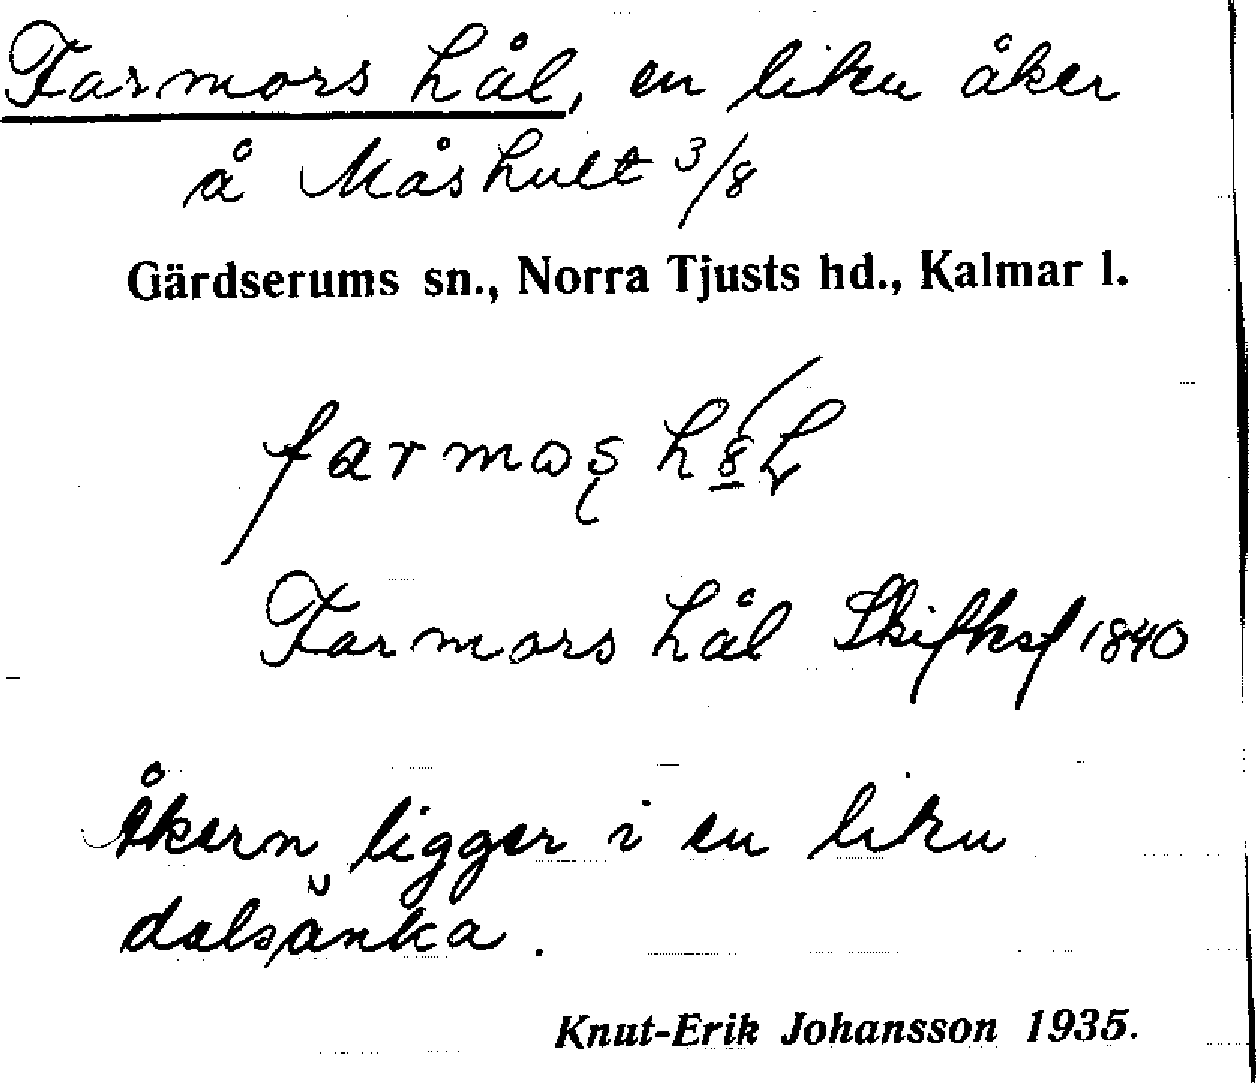 Farmors hål, en liten åker
å Måshult 3/8
Gärdserums sn., Norra Tjusts hd., Kalmar l.
farmos
Farmors hål Skifksf 1840
Åkern ligger i en liten
dalsänka.
Knut-Erik Johansson 1935.